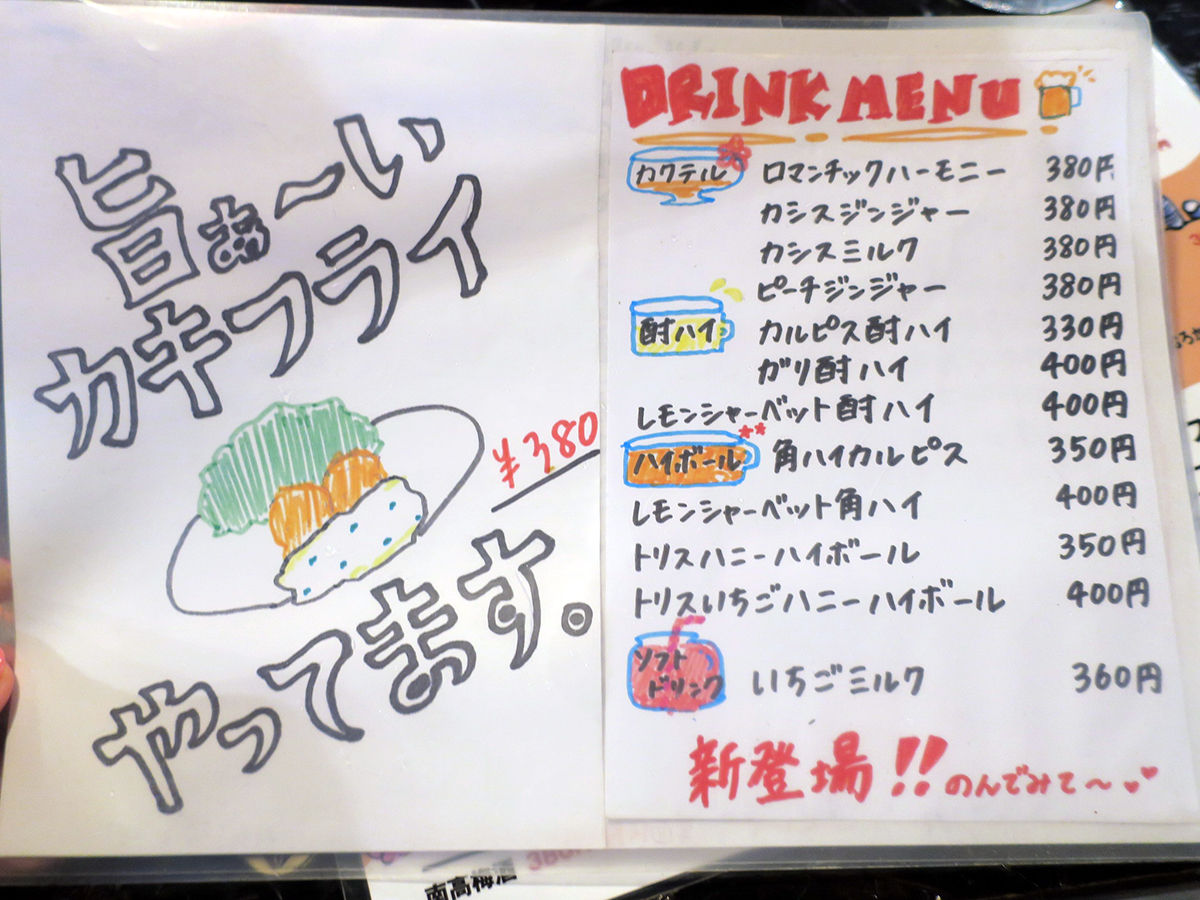 旨ぁ〜い
カキフライ
¥380
やってます。
DRINK MENU
カクテル ロマンチックハーモニー 380円
カシスジンジャー 380円
カシスミルク 380円
ピーチジンジャー 380円
酎ハイ カルピス酎ハイ 330円
ガリ酎ハイ 400円
レモンシャーベット酎ハイ 400円
ハイボール 角ハイカルピス 350円
レモンシャーベット角ハイ 400円
トリスハニーハイボール 350円
トリスいちごハニーハイボール 400円
ソフト
ドリンク いちごミルク 360円
新登場!! のんでみて〜
南高梅酒 380